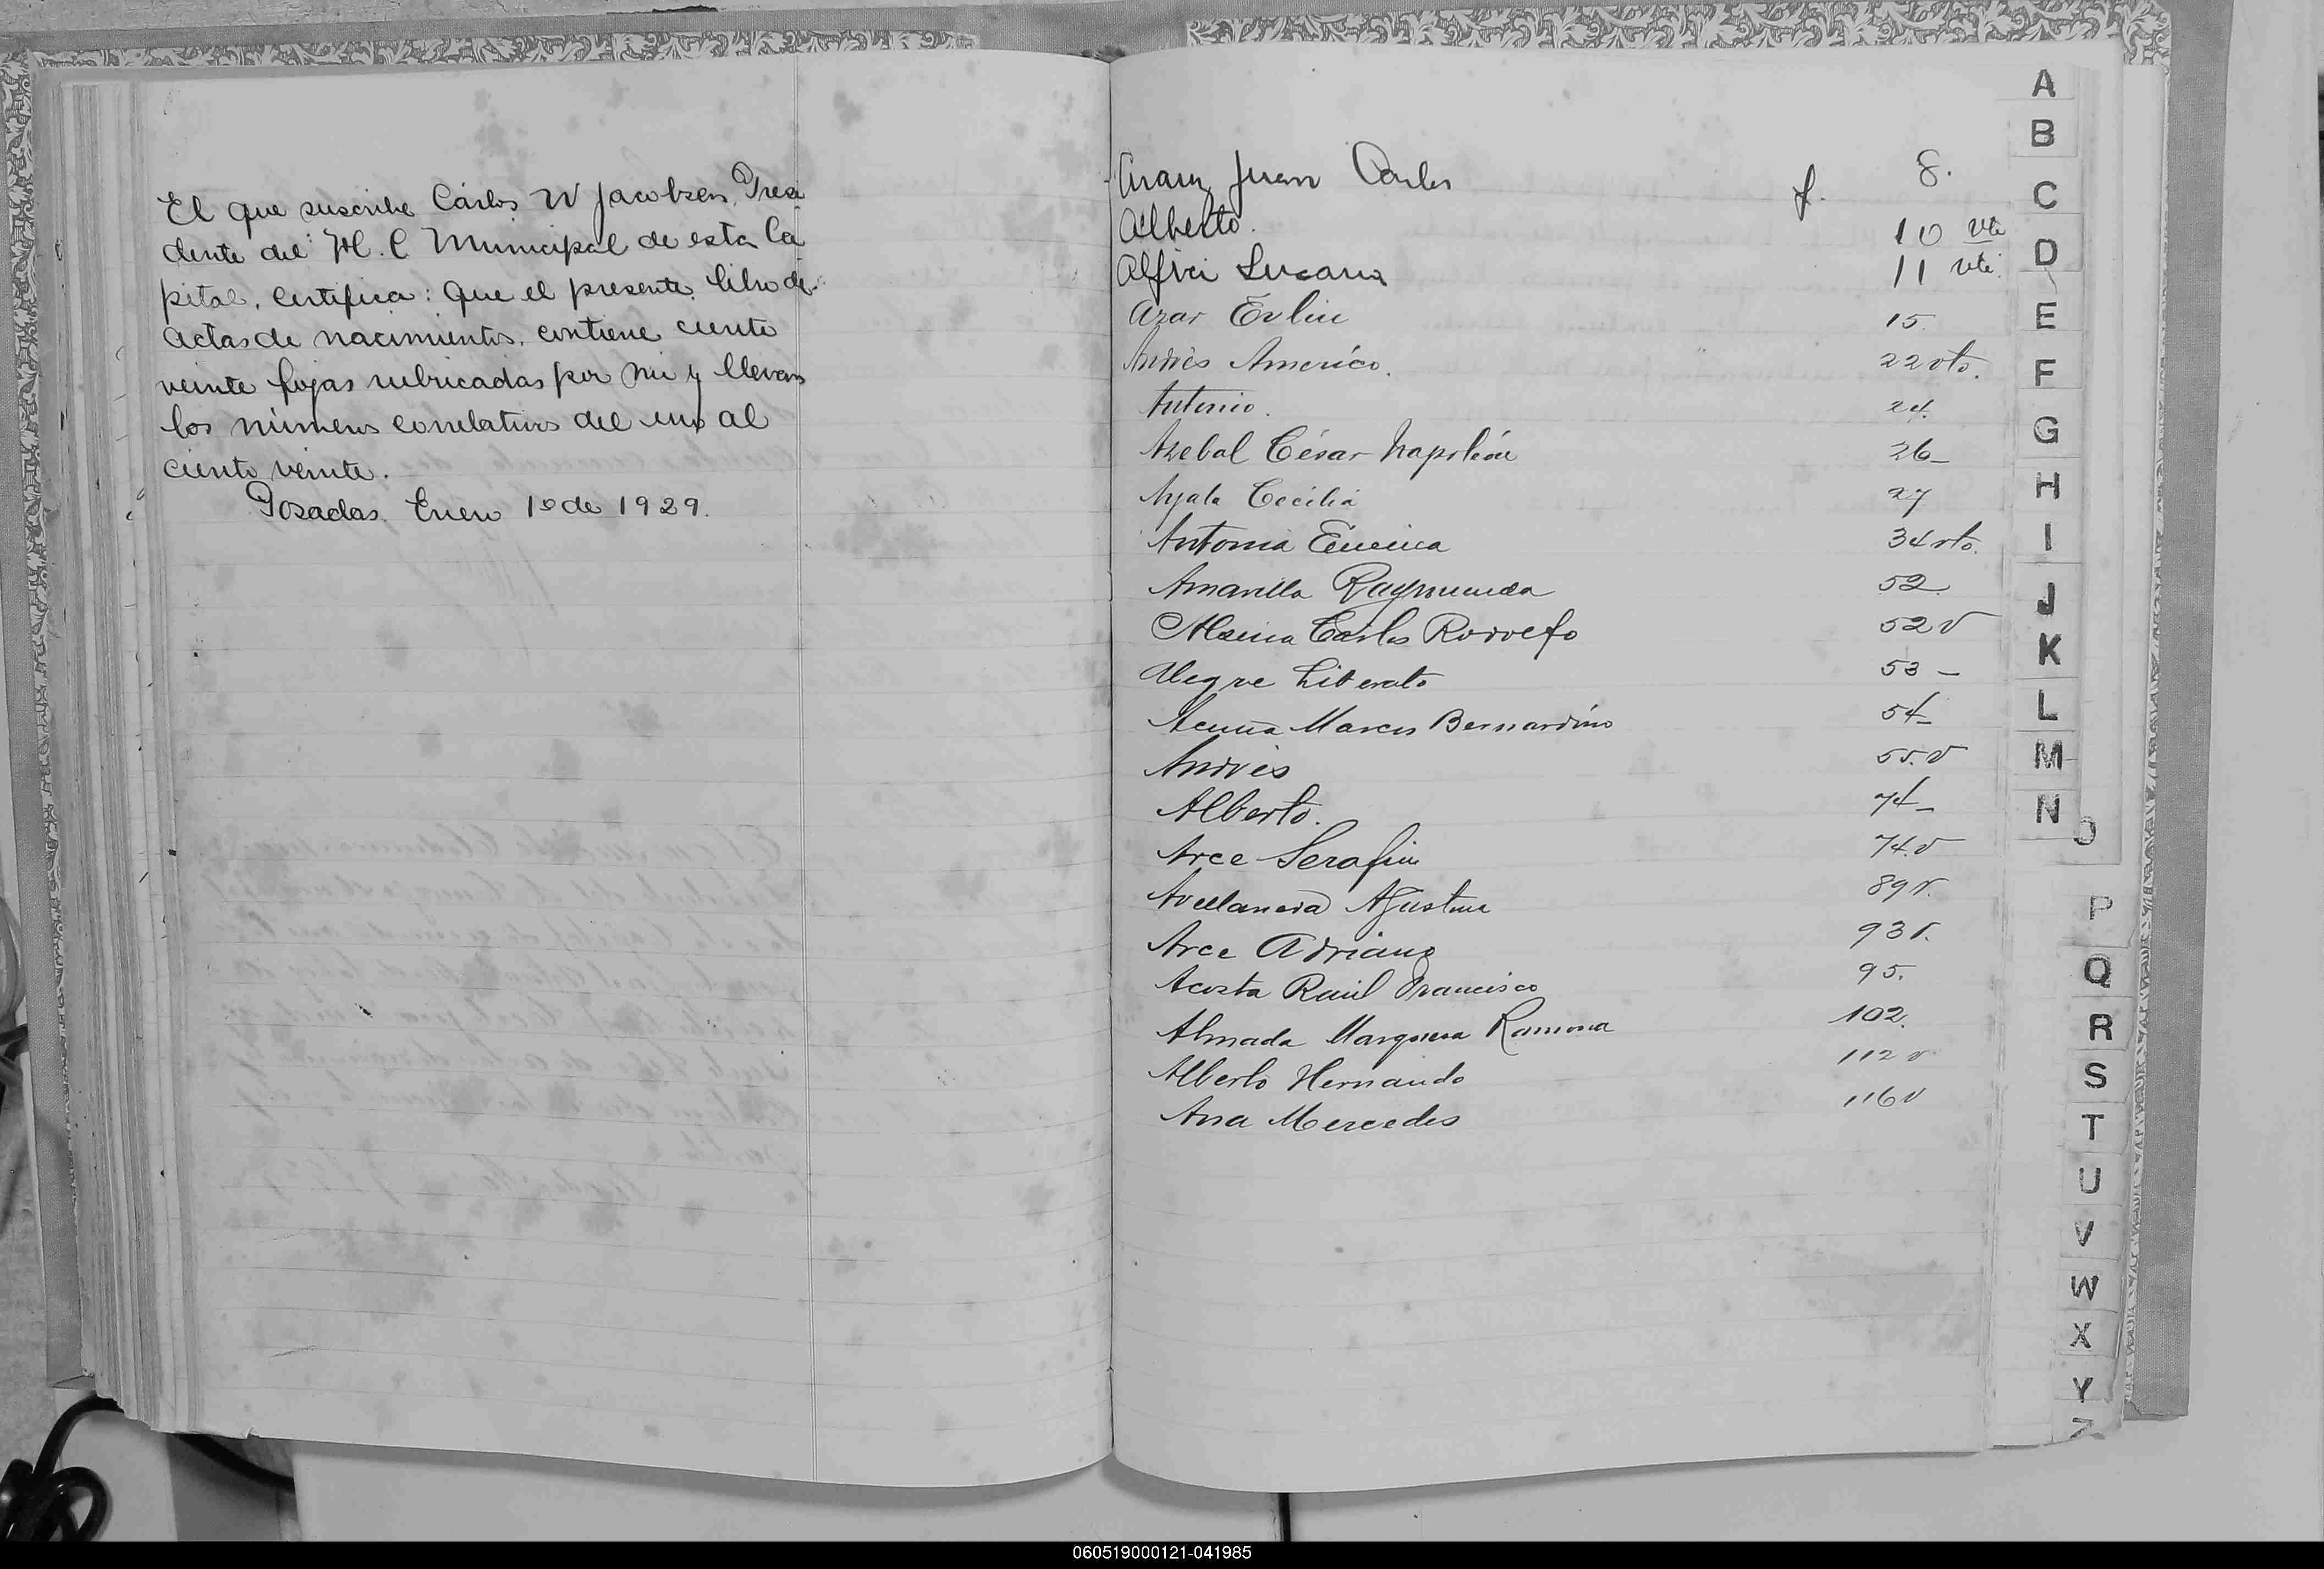 El que suscribe Cárlos W Jacobsen, Presi
dente del H. C. Municipal de esta Ca
pital, certifica: Que el presente libro de
actas de nacimientos, contiene ciento
veinte fojas rubricadas por mi y llevan
los números correlativos del uno al
ciento veinte.
Posadas, Enero 1º de 1929.
Juan Carlos f. 8.
Alberto. 10 vta
Luciana 11 vta.
Azar Evlin 15.
Andrés Américo. 22 vto.
Antonio. 24.
César Napoleón 26_
Ayala Cecilia 27
Antonia 34 vto.
Amarilla Raymunda 52
Carlos Rodolfo 52 v
Alegre Liberato 53 _
Acuña Marcos Bernardino 54_
Andrés 55.v
Alberto. 74_
Arce Serafin 74.v
Avellaneda Agustina 89 v.
Arce Adriano 93 v.
Acosta Raúl Francisco 95.
Almada Ramona 102.
Alberto Hernando 112 v
Ana Mercedes 116 v
A
B
C
D
E
F
G
H
I
J
K
L
M
N
O
P
Q
R
S
T
U
V
W
X
Y
Z
060519000121-041985